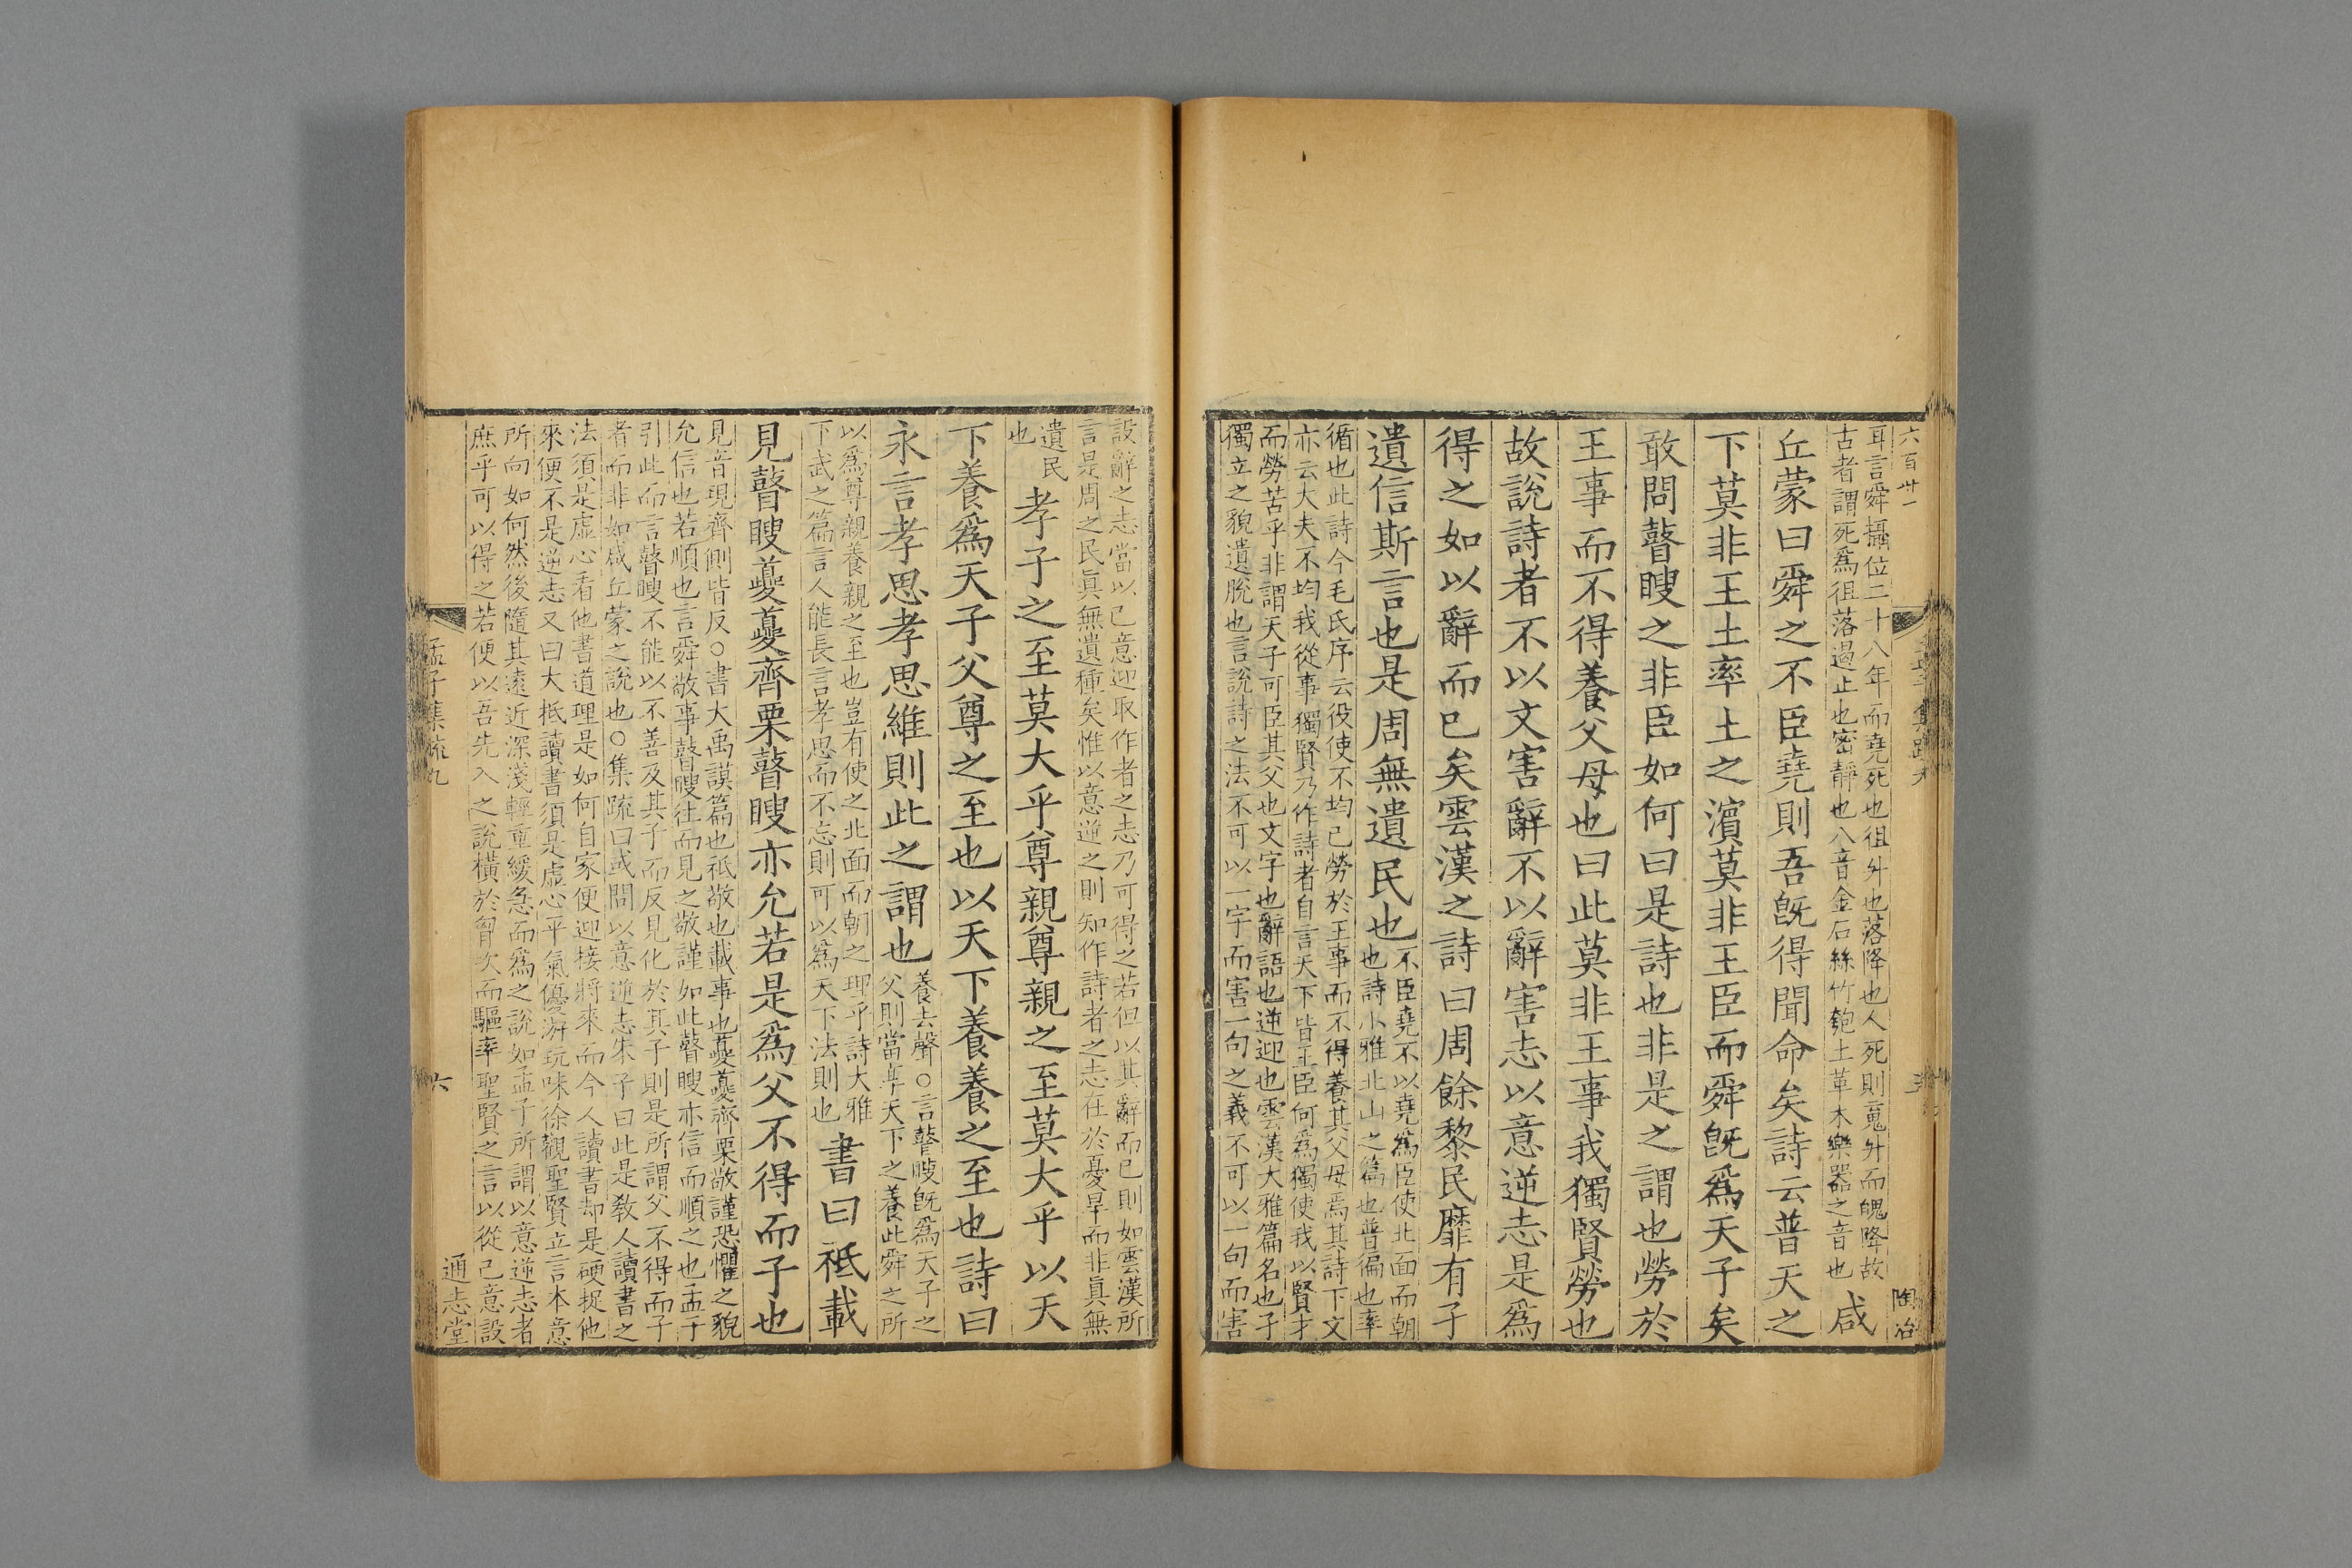 六百卅一
陶冶
耳言舜攝位二十八年而堯死也徂升也落降也人死則䰟升而魄降故
古者謂死爲徂落遏止也密靜也八音金石絲竹匏土革木樂器之音也
咸
丘蒙曰舜之不臣堯則吾旣得聞命矣詩云普天之
下莫非王土率土之濱莫非王臣而舜旣爲天子矣
敢問瞽瞍之非臣如何曰是詩也非是之謂也勞於
王事而不得養父母也曰此莫非王事我獨賢勞也
故說詩者不以文害辭不以辭害志以意逆志是爲
得之如以辭而已矣雲漢之詩曰周餘黎民靡有子
遺信斯言也是周無遺民也
不臣堯不以堯爲臣使北面而朝
也詩小雅北山之篇也普徧也率
循也此詩今毛氏序云役使不均已勞於王事而不得養其父母焉其詩下文
亦云大夫不均我從事獨賢乃作詩者自言天下皆王臣何爲獨使我以賢才
而勞苦乎非謂天子可臣其父也文字也辭語也逆迎也雲漢大雅篇名也子
獨立之貌遺脫也言說詩之法不可以一字而害一句之義不可以一句而害
設辭之志當以已意迎取作者之志乃可得之若但以其辭而已則如雲漢所
言是周之民眞無遺種矣惟以意逆之則知作詩者之志在於憂旱而非眞無
遺民
也
孝子之至莫大乎尊親尊親之至莫大乎以天
下養爲天子父尊之至也以天下養養之至也詩曰
永言孝思孝思維則此之謂也
養去聲○言瞽瞍旣爲天子之
父則當享天下之養此舜之所
以爲尊親養親之至也豈有使之北面而朝之理乎詩大雅
下武之篇言人能長言孝思而不忘則可以爲天下法則也
書曰祗載
見瞽瞍夔夔齊栗瞽瞍亦允若是爲父不得而子也
見音現齊側皆反○書大禹謨篇也祗敬也載事也夔夔齊栗敬謹恐懼之貌
允信也若順也言舜敬事瞽瞍往而見之敬謹如此瞽瞍亦信而順之也孟子
引此而言瞽瞍不能以不善及其子而反見化於其子則是所謂父不得而子
者而非如咸丘蒙之說也○集疏曰或問以意逆志朱子曰此是敎人讀書之
法須是虛心看他書道理是如何自家便迎接將來而今人讀書却是硬捉他
來便不是逆志又曰大抵讀書須是虛心平氣優游玩味徐觀聖賢立言本意
所向如何然後隨其遠近深淺輕重緩急而爲之說如孟子所謂以意逆志者
庶乎可以得之若便以吾先入之說橫於胷次而驅率聖賢之言以從己意設
孟子集疏九
六
通志堂